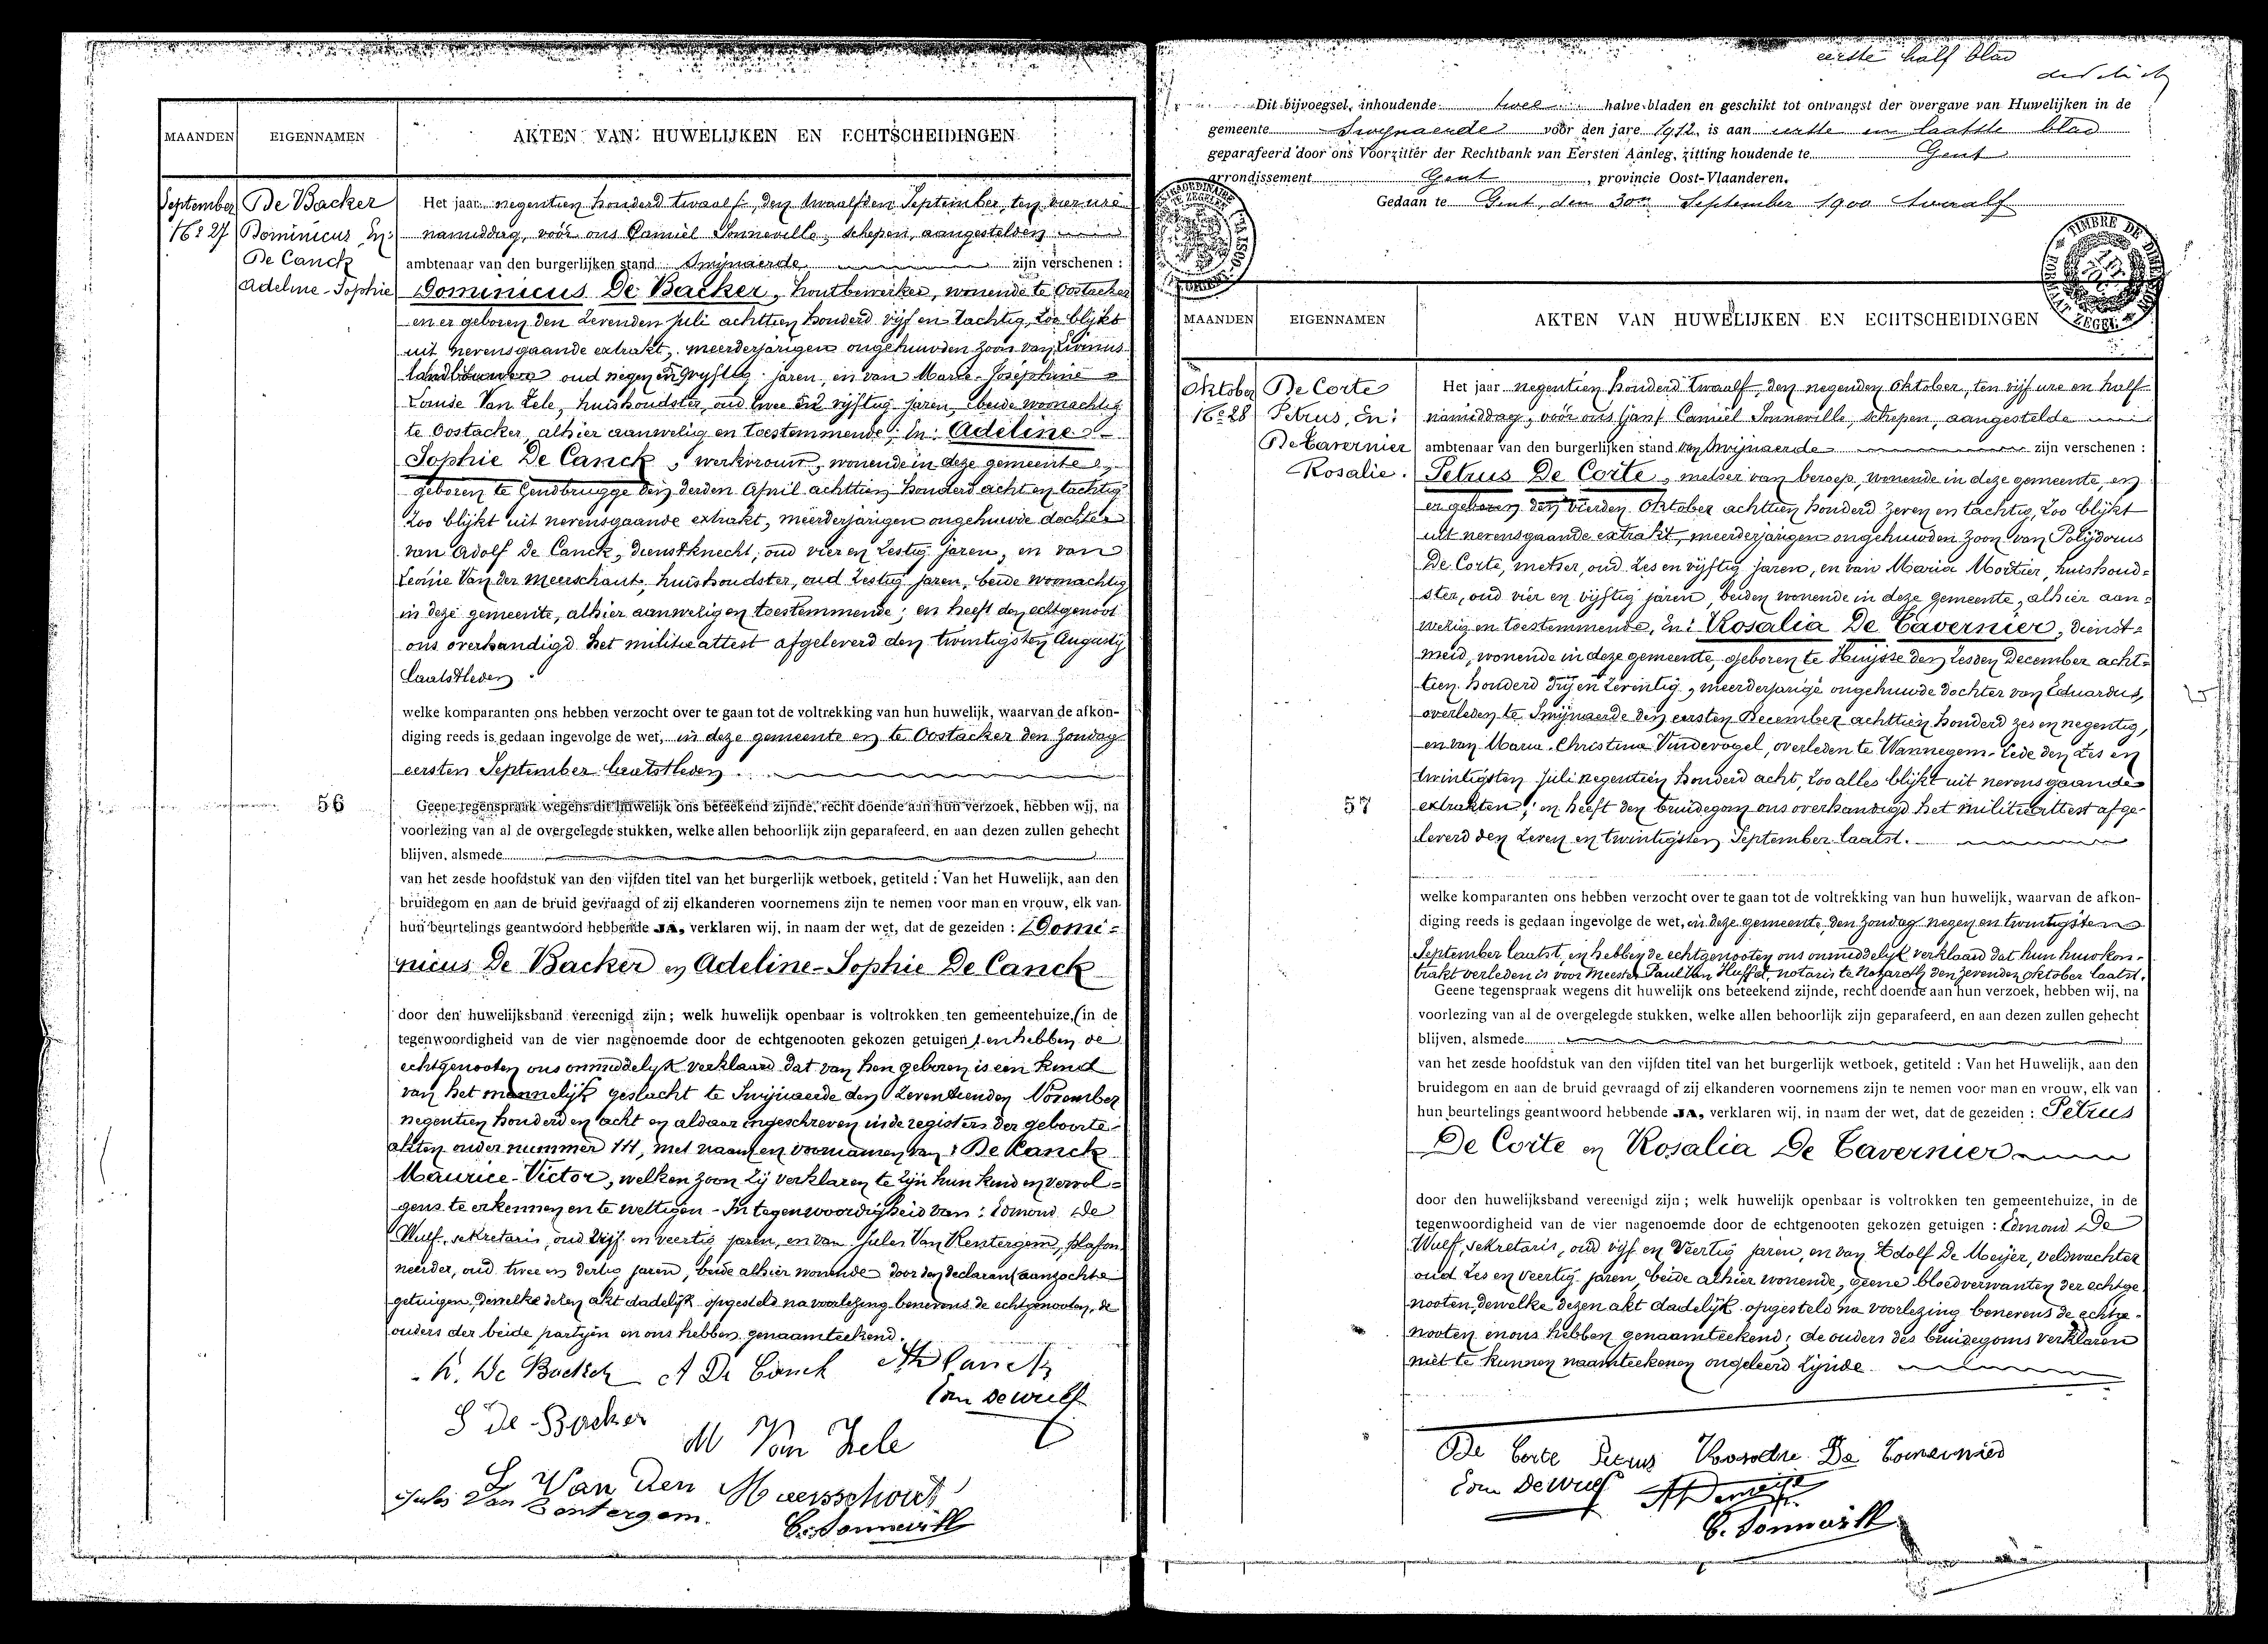 MAANDEN
EIGENNAMEN
AKTEN VAN HUWELIJKEN EN ECHTSCHEIDINGEN
September
No 27
De Backer
Dominicus En:
De Canck
Adeline-Sophie
Het jaar negentien honderd twaalf, den twaalfden September, ten vier ure
namiddag, voor ons Camiel Sonneville, schepen, aangestelden
ambtenaar van den burgerlijken stand Swijnaerde zijn verschenen :
Dominicus De Backer, houtbewerker, wonende te Oostacker
en er geboren den zevenden Juli achttien honderd vijf en tachtig, zoo blijkt
uit nevensgaande extrakt, meerderjarigen ongehuwden zoon van Livinus
landbouwer oud negen en vyftig jaren, en van Marie-Josephine
Louise Van Zele, huishoudster, oud twee en vijftig jaren, beide woonachtig
te Oostacker, alhier aanwezig en toestemmende; En: Adeline
Sophie De Canck, werkvrouw, wonende in deze gemeente
geboren te Gendbrugge den derden April achttien honderd acht en tachtig
zoo blijkt uit nevensgaande extrakt, meerderjarigen ongehuwde dochter
van Adolf De Canck, dienstknecht, oud vier en zestig jaren, en van
Leonie Van der Meerschaut, huishoudster, oud zestig jaren, beide woonachtig
in deze gemeente, alhier aanwezig en toestemmende; en heeft den echtgenoot
ons overhandigd het militieattest afgeleverd den twintigsten Augusty
laatstleden.
welke komparanten ons hebben verzocht over te gaan tot de voltrekking van hun huwelijk, waarvan de afkon-
diging reeds is gedaan ingevolge de wet, in deze gemeente en te Oostacker den Zondag
eersten September laatstleden.
56
Geene tegenspraak wegens dit huwelijk ons beteekend zijnde, recht doende aan hun verzoek, hebben wij, na
voorlezing van al de overgelegde stukken, welke allen behoorlijk zijn geparafeerd, en aan dezen zullen gehecht
blijven, alsmede
van het zesde hoofdstuk van den vijfden titel van het burgerlijk wetboek, getiteld : Van het Huwelijk, aan den
bruidegom en aan de bruid gevraagd of zij elkanderen voornemens zijn te nemen voor man en vrouw, elk van
hun beurtelings geantwoord hebbende JA, verklaren wij, in naam der wet, dat de gezeiden : Domi=
nicus De Backer en Adeline-Sophie De Canck
door den huwelijksband vereenigd zijn; welk huwelijk openbaar is voltrokken ten gemeentehuize, (in de
tegenwoordigheid van de vier nagenoemde door de echtgenooten gekozen getuigen) en hebben de
echtgenooten ons onmiddelyk verklaard dat van hen geboren is een kind
van het mannelijk geslacht te Swijnaerde den zeventienden November
negentien honderd en acht en aldaar ingeschreven in de registers der geboorte
akten onder nummer 111, met naam en voornamen van: De Canck
Maurice-Victor, welken zoon zij verklaren te zijn hun kind en vervol=
gens te erkennen en te wettigen - In tegenwoordigheid van: Edmond De
Wulf, sekretaris, oud vijf en veertig jaren, en van Jules Van Kerstergem, plafon
neerder, oud twee en dertig jaren, beide alhier wonende door den declarant aanzochte
getuigen, dewelke dezen akt dadelijk opgesteld na voorlezing benevens de echtgenooten, de
ouders der beide partyen en ons hebben genaamteekend.
De Backer A De Canck
Edm Dewulf
De Backer
M Van Zele
L Van den Meersschout
Jules Van
C. Sonneville
eerste half blad
Dit bijvoegsel, inhoudende twee halve bladen en geschikt tot ontvangst der overgave van Huwelijken in de
gemeente Swijnaerde voor den jare 1912, is aan eerste en laatste blad
geparafeerd door ons Voorzitter der Rechtbank van Eersten Aanleg, zitting houdende te Gent
arrondissement Gent, provincie Oost-Vlaanderen.
Gedaan te Gent, den 30n September 1900 twaalf
TIMBRE DE DIMENSION
FORMAAT ZEGEL
MAANDEN
EIGENNAMEN
AKTEN VAN HUWELIJKEN EN ECHTSCHEIDINGEN
Oktober
No 28
De Corte
Petrus, En:
De Tavernier
Rosalie.
Het jaar negentien honderd twaalf, den negenden Oktober, ten vijf ure en half
namiddag, voor ons Camiel Sonneville, schepen, aangestelde
ambtenaar van den burgerlijken stand van Swijnaerde zijn verschenen :
Petrus De Corte, metser van beroep, wonende in deze gemeente, en
er geboren den vierden Oktober achttien honderd zeven en tachtig, zoo blijkt
uit nevensgaande extrakt, meerderjarigen ongehuwden zoon van Polijdorus
De Corte, metser, oud zes en vijftig jaren, en van Maria Mortier, huishoud=
ster, oud vier en vijftig jaren, beiden wonende in deze gemeente, alhier aan=
wezig en toestemmende, En: Rosalia De Tavernier, dienst=
meid, wonende in deze gemeente, geboren te Huijsse den zesden December acht=
tien honderd drij en zeventig, meerderjarige ongehuwde dochter van Eduardus,
overleden te Swijnaerde den eersten December achttien honderd zes en negentig,
en van Maria-Christina Vindevogel, overleden te Wannegem-Lede den zes en
twintigsten Juli negentien honderd acht, zoo alles blijkt uit nevensgaande
57
extrakten; en heeft den bruidegom ons overhandigd het militieattest afge-
leverd den zeven en twintigsten September laatst.
welke komparanten ons hebben verzocht over te gaan tot de voltrekking van hun huwelijk, waarvan de afkon-
diging reeds is gedaan ingevolge de wet, in deze gemeente, den Zondag negen en twintigsten
September laatst, en hebben de echtgenooten ons onmiddelyk verklaard dat hun huwkon-
trakt verleden is voor Meester Paul Van Huffel, notaris te Nazareth den zevenden Oktober laatst.
Geene tegenspraak wegens dit huwelijk ons beteekend zijnde, recht doende aan hun verzoek, hebben wij, na
voorlezing van al de overgelegde stukken, welke allen behoorlijk zijn geparafeerd, en aan dezen zullen gehecht
blijven, alsmede
van het zesde hoofdstuk van den vijfden titel van het burgerlijk wetboek, getiteld : Van het Huwelijk, aan den
bruidegom en aan de bruid gevraagd of zij elkanderen voornemens zijn te nemen voor man en vrouw, elk van
hun beurtelings geantwoord hebbende JA, verklaren wij, in naam der wet, dat de gezeiden : Petrus
De Corte en Rosalia De Tavernier
door den huwelijksband vereenigd zijn ; welk huwelijk openbaar is voltrokken ten gemeentehuize, in de
tegenwoordigheid van de vier nagenoemde door de echtgenooten gekozen getuigen : Edmond De
Wulf, sekretaris, oud vijf en veertig jaren, en van Adolf De Meijer, veldwachter
oud zes en veertig jaren, beide alhier wonende, geene bloedverwanten der echtge
nooten, dewelke dezen akt dadelijk opgesteld na voorlezing benevens de echtge-
nooten en ons hebben genaamteekend; de ouders des bruidegoms verklaren
niet te kunnen naamteekenen ongeleerd zijnde.
De Corte Petrus Rosalie De Tavernier
Edm Dewulf
C. Sonneville